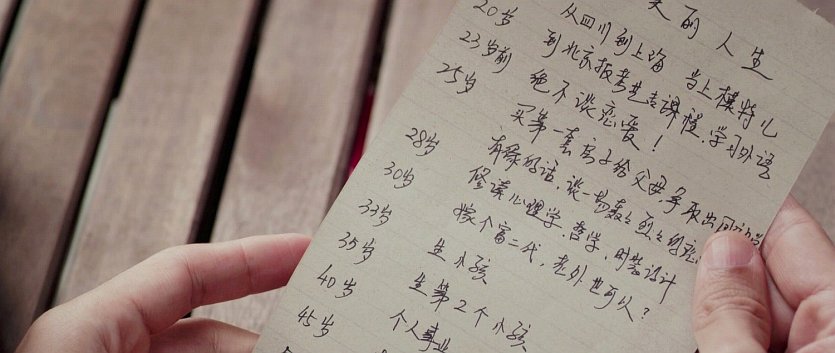 的人生
20岁 从四川到上海 当上模特儿
23岁前 到北京报考艺术课程,学习外语
25岁 绝不谈恋爱!
买第一套房子给父母,争取出
28岁 有缘的话,谈一场轰轰烈烈的恋
30岁 修读心理学,哲学,时装设计
33岁 嫁个富二代,老外也可以?
35岁 生小孩
40岁 生第2个小孩
45岁 个人事业